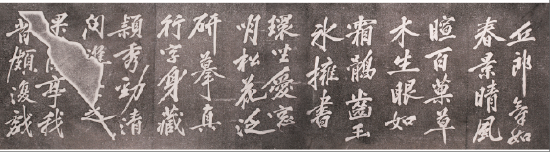 丘郎氣如
春景晴風
暄百菓草
木生眼如
霜鶻齒玉
冰擁書
環坐愛窓
明松花泛
研摹真
行字身藏
穎秀勁清
問誰之
果亭我
昔頗復戲